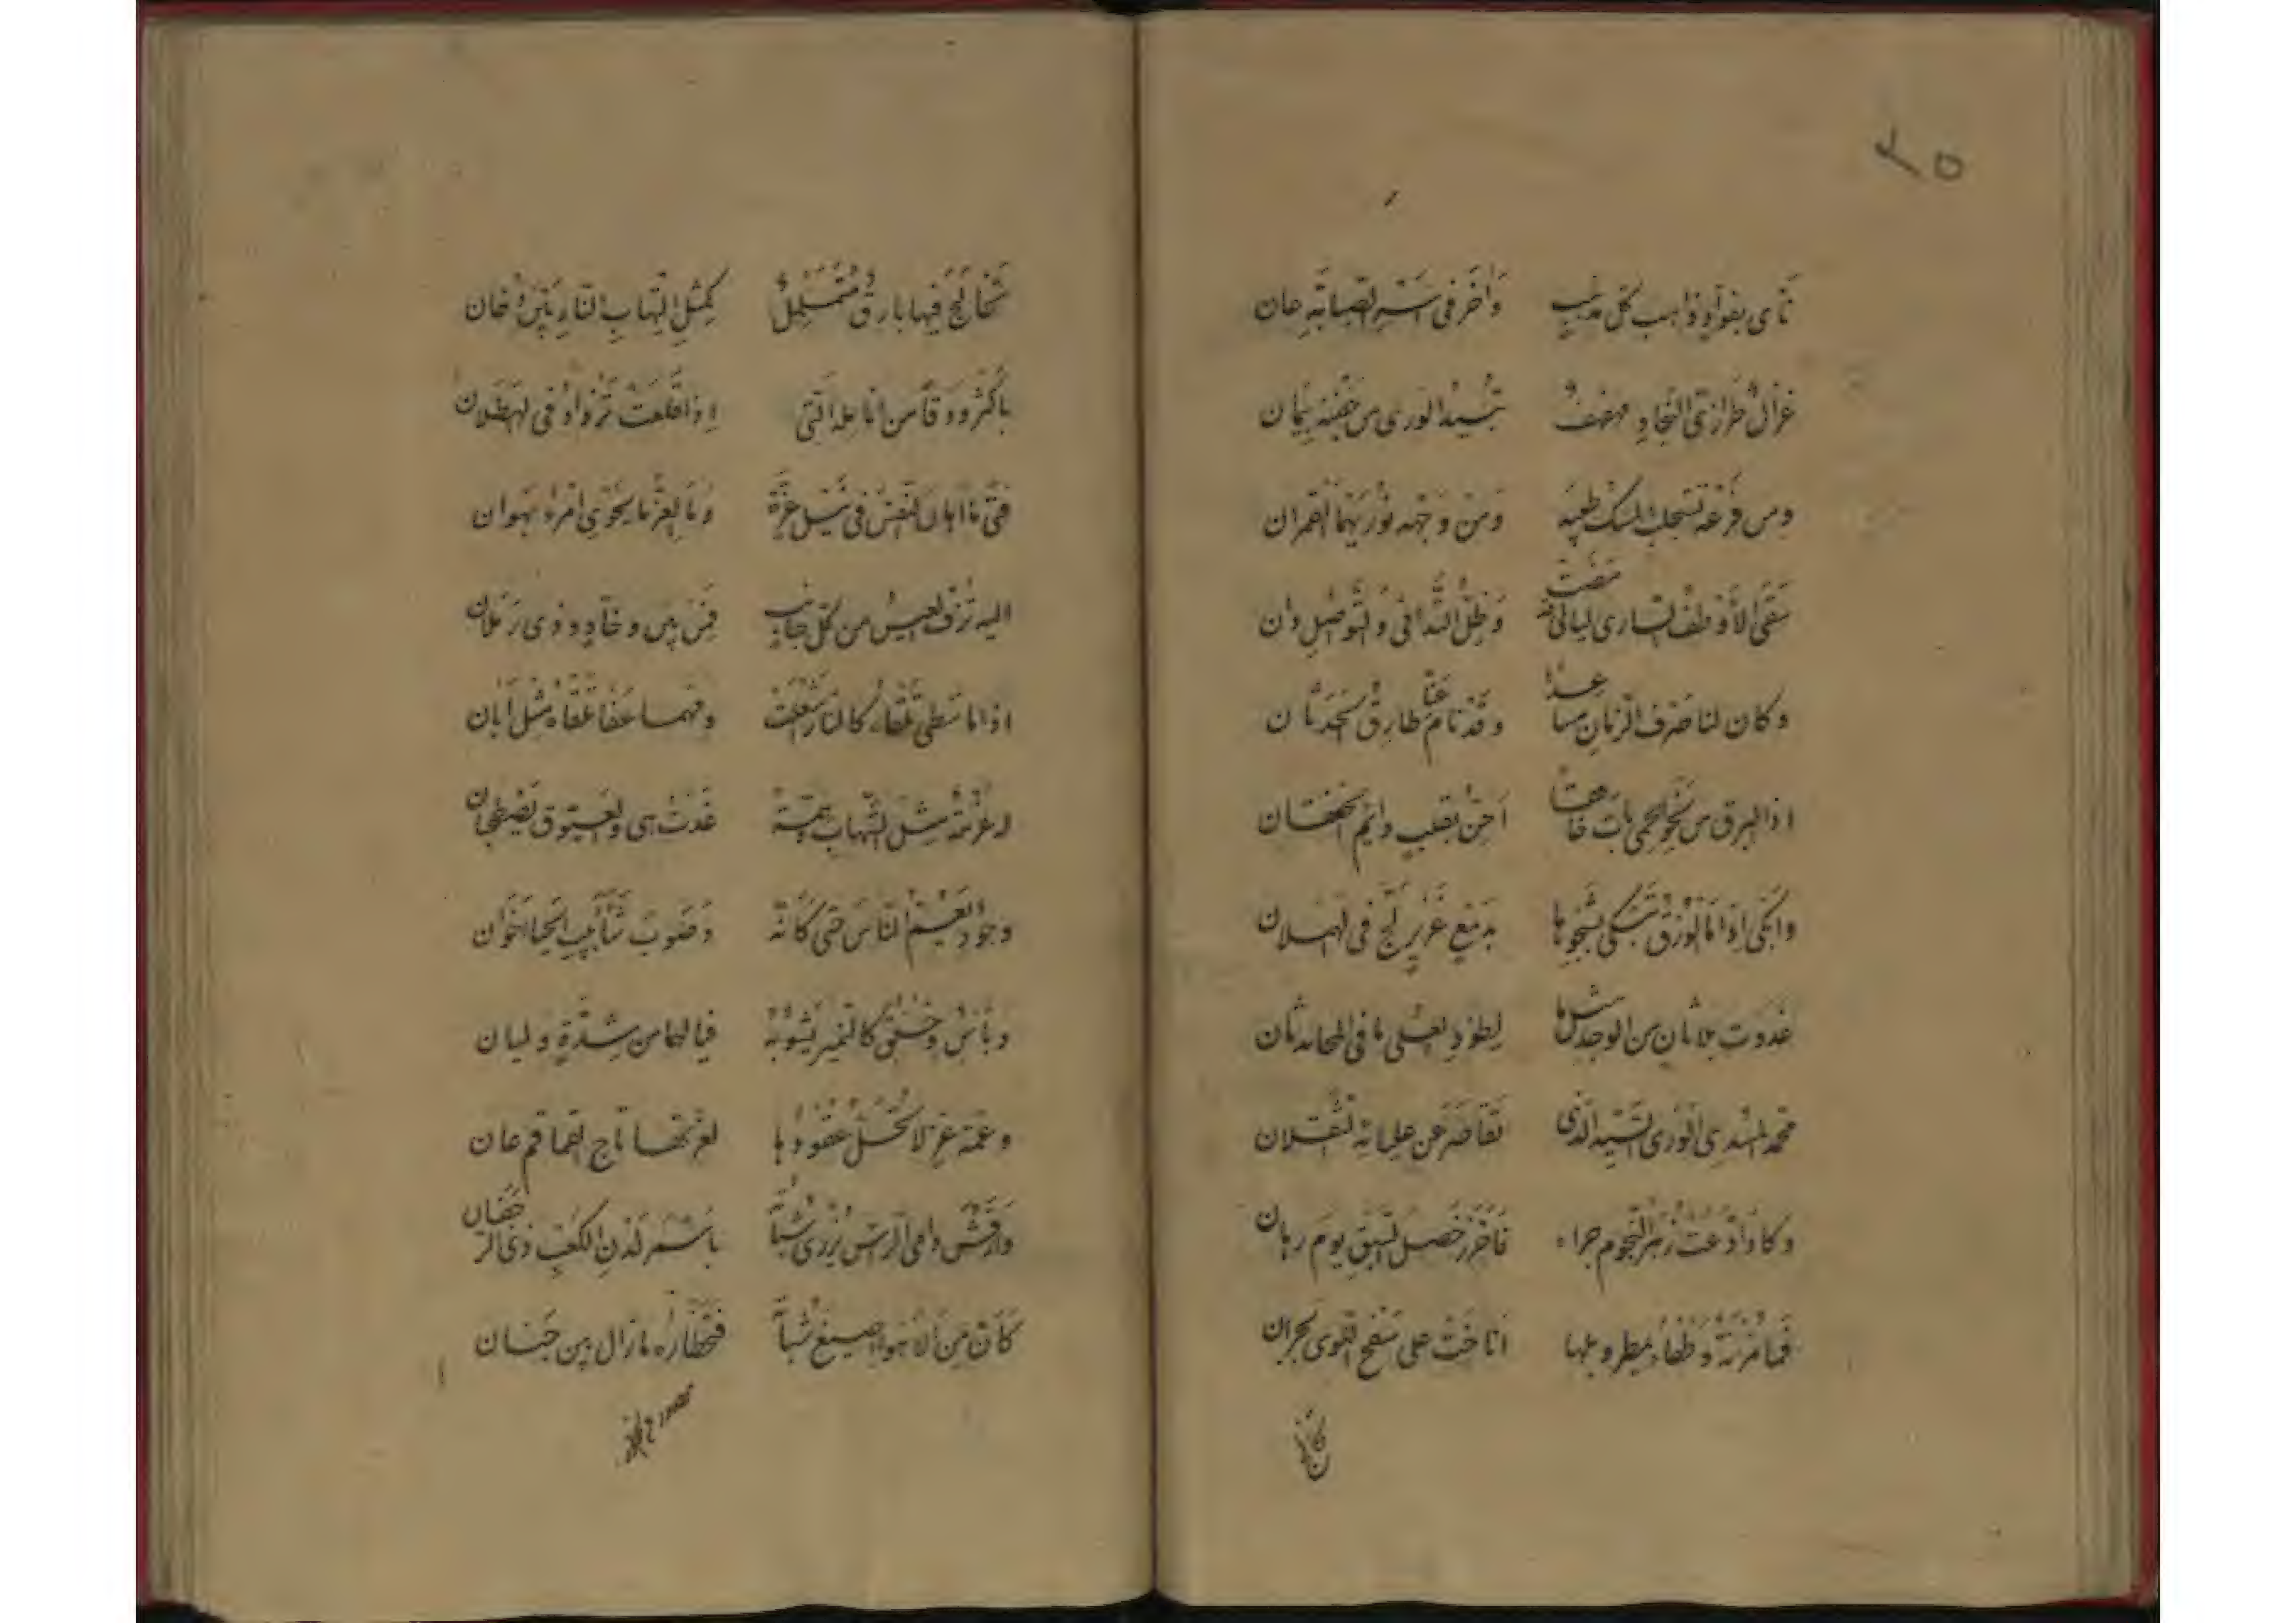 ٢٥
نأى بفؤاد ذاهب كل مذهب وآخر فى اسر الصبابة عان
غزال طرازى النجاد مهفهف تبيد الورى من جفنه
ومن فرعه تستجلب المسك طيبه ومن وجهه نور بهما القمران
سقى الأوطف السارى ليالى مضت وظل التدانى والتواصل دان
وكان لنا صرف الزمان مساعدا وقد نام عنا طارق الحدثان
اذا البرق من نحو الحمى بات خافقا احن بقلب دائم الخفقان
وابكى اذا ما الورق تبكى بشجوها بدمع غزير لج فى الهملان
غدوت بلا ثان من الوجد مثلما لطود العلى ما فى المحامد ثان
محمد المسدى الورى السيد الذى تقاصر عن عليائه الثقلان
وكاد ادعت زهر النجوم جراه فاحرز خصل السبق يوم رهان
فما مزنة وطفاء يمطر وبلها اناخت على سفح اللوى بجران
تخالج فيها بارق متململ كمثل التهاب النار بين دخان
باكثر ودقا من انامله التى اذا اقلعت تزداد فى الهطلان
فتى ما اهان النفس فى نيل عزة وما العز ما يحوى امرء بهوان
اليه تزف العيس من كل جانب فمن بين وخاد وذى رملان
اذا ما سطى تلقاه كالنار شعلت ومهما عفا تلقاه مثل ابان
له عزمة مثل الشهاب غدت هى والعيوق يصطحبان
وجود يعم الناس حتى كأنه وصوب شآبيب الحيا اخوان
وبأس وخلق كالنمير يشوبه فيا لهما من شدة وليان
وعمة عز لا تحل عقودها لعزتها تاج القماقم عان
وارقش دامى الرأس يزرى شباته باسمر لدن الكعب ذى الرجفان
كان من الاهواء صيغ شباته فخطاره ما زال بين جنان
كان